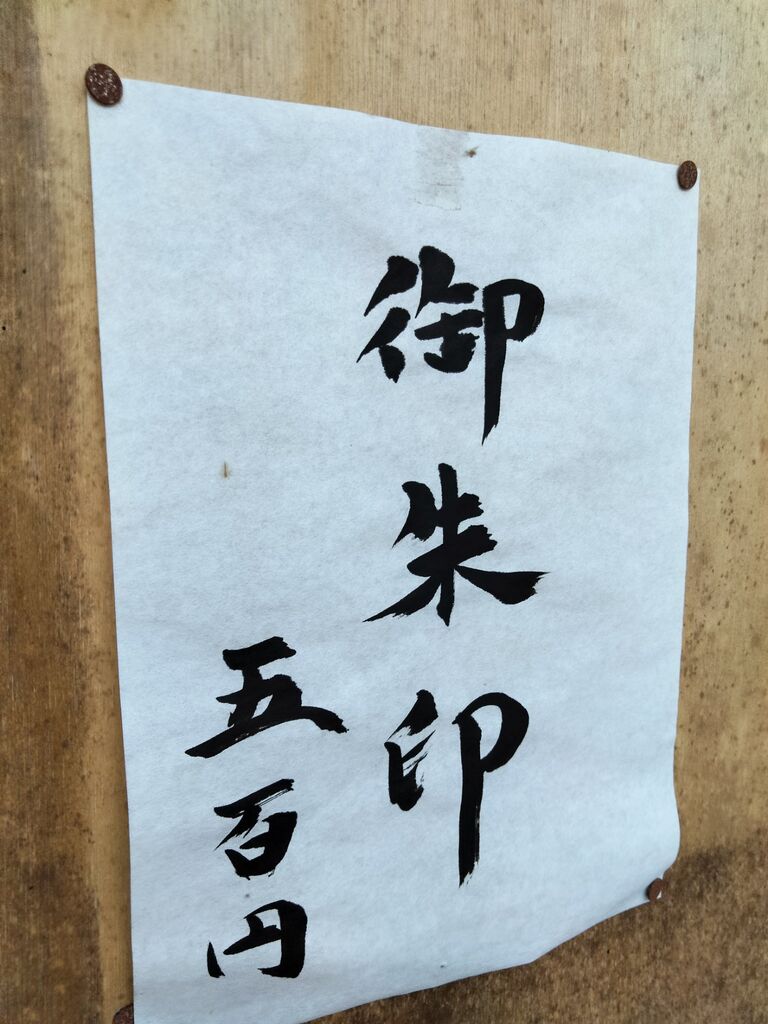 御朱印
五百円